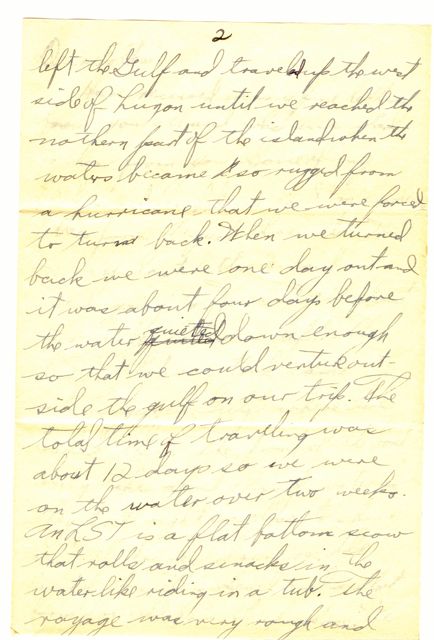 2
left the Gulf and traveled up the west
side of Luzon until we reached the
nothern part of the island when the
waters became so rugged from
a hurricane that we were forced
to turn back. When we turned
back we were one day out and
it was about four days before
the water quieted down enough
so that we could venture out-
side the gulf on our trip. The
total time of travelling was
about 12 days so we were
on the water over two weeks.
An LST is a flat bottom scow
that rolls and smacks in the
water like riding in a tub. The
voyage was very rough and